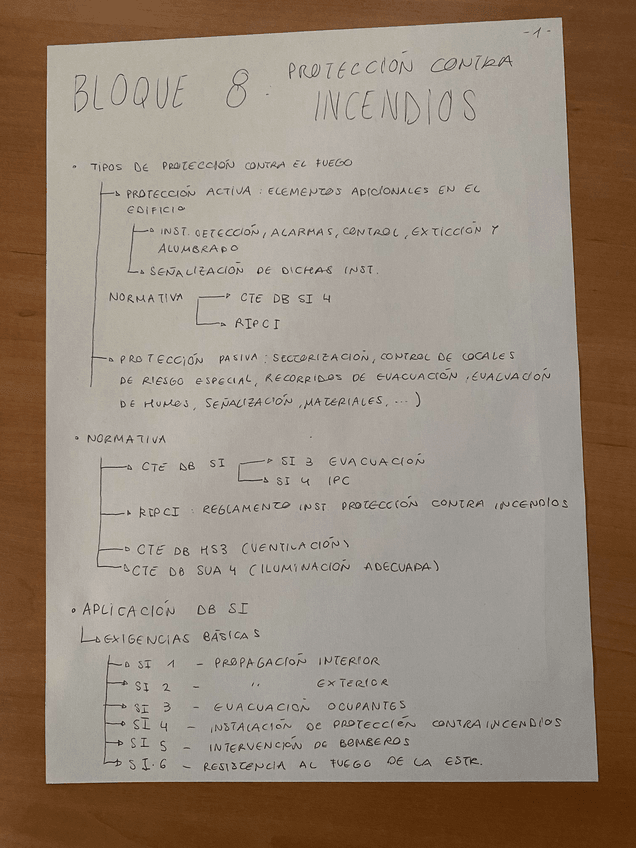 -1-
BLOQUE 8: PROTECCIÓN CONTRA
INCENDIOS
• TIPOS DE PROTECCIÓN CONTRA EL FUEGO
PROTECCIÓN ACTIVA: ELEMENTOS ADICIONALES EN EL
EDIFICIO
INST. DETECCIÓN, ALARMAS, CONTROL, EXTICCIÓN Y
ALUMBRADO
SEÑALIZACIÓN DE DICHAS INST.
NORMATIVA CTE DB SI 4
RIPCI
PROTECCIÓN PASIVA: SECTORIZACIÓN, CONTROL DE LOCALES
DE RIESGO ESPECIAL, RECORRIDOS DE EVACUACIÓN, EVALUACIÓN
DE HUMOS, SEÑALIZACIÓN, MATERIALES, ...)
• NORMATIVA
CTE DB SI SI 3 EVACUACIÓN
SI 4 IPC
RIPCI: REGLAMENTO INST PROTECCIÓN CONTRA INCENDIOS
CTE DB HS3 (VENTILACIÓN)
CTE DB SUA 4 (ILUMINACIÓN ADECUADA)
• APLICACIÓN DB SI
EXIGENCIAS BÁSICAS
SI 1 - PROPAGACIÓN INTERIOR
SI 2 - " EXTERIOR
SI 3 - EVACUACIÓN OCUPANTES
SI 4 - INSTALACIÓN DE PROTECCIÓN CONTRA INCENDIOS
SI 5 - INTERVENCIÓN DE BOMBEROS
SI.6 - RESISTENCIA AL FUEGO DE LA ESTR.